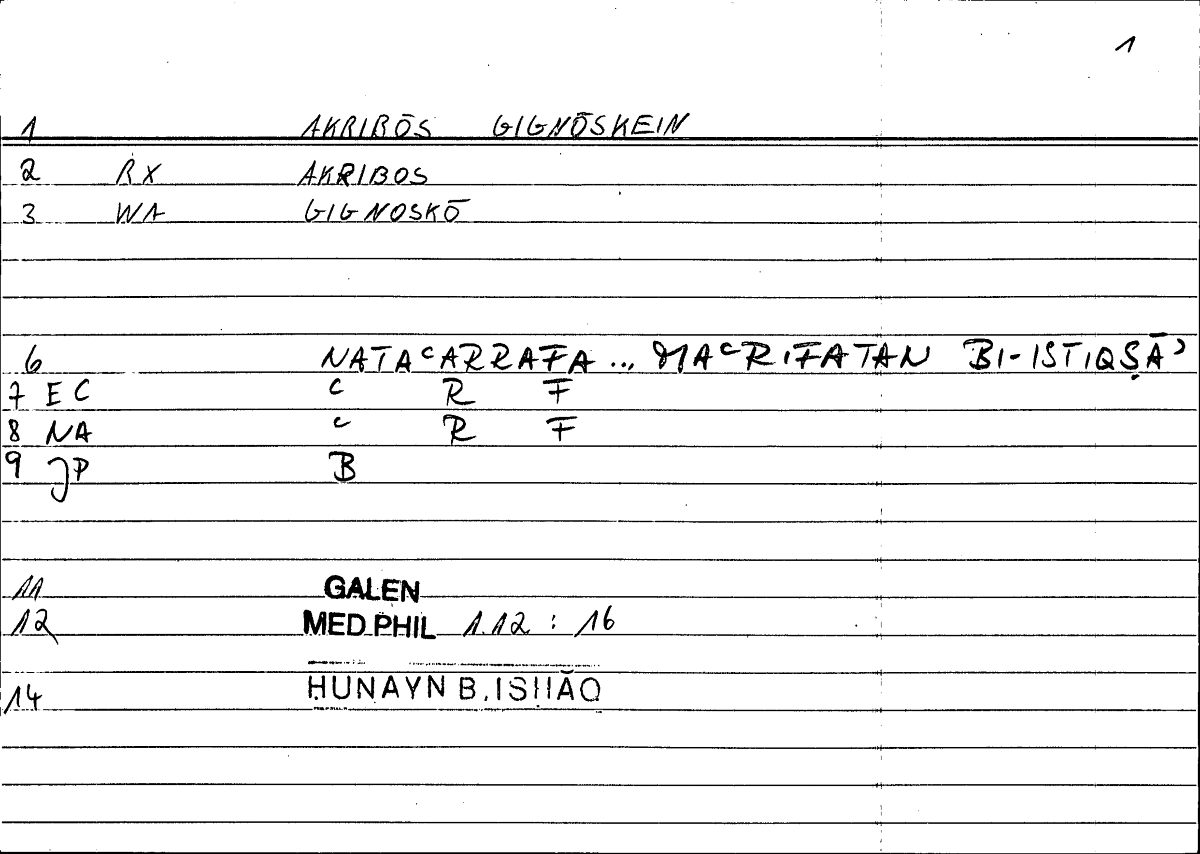 1
1 AKRIBŌS GIGNŌSKEIN
2 RX AKRIBOS
3 WA GIGNOSKŌ
6 NATAᶜARRAFA ... MAᶜRIFATAN BI-ISTIQṢĀʾ
7 EC ᶜ R F
8 NA ᶜ R F
9 JP B
11 GALEN
12 MED.PHIL 1.12 : 16
14 ḤUNAYN B. ISḤĀQ